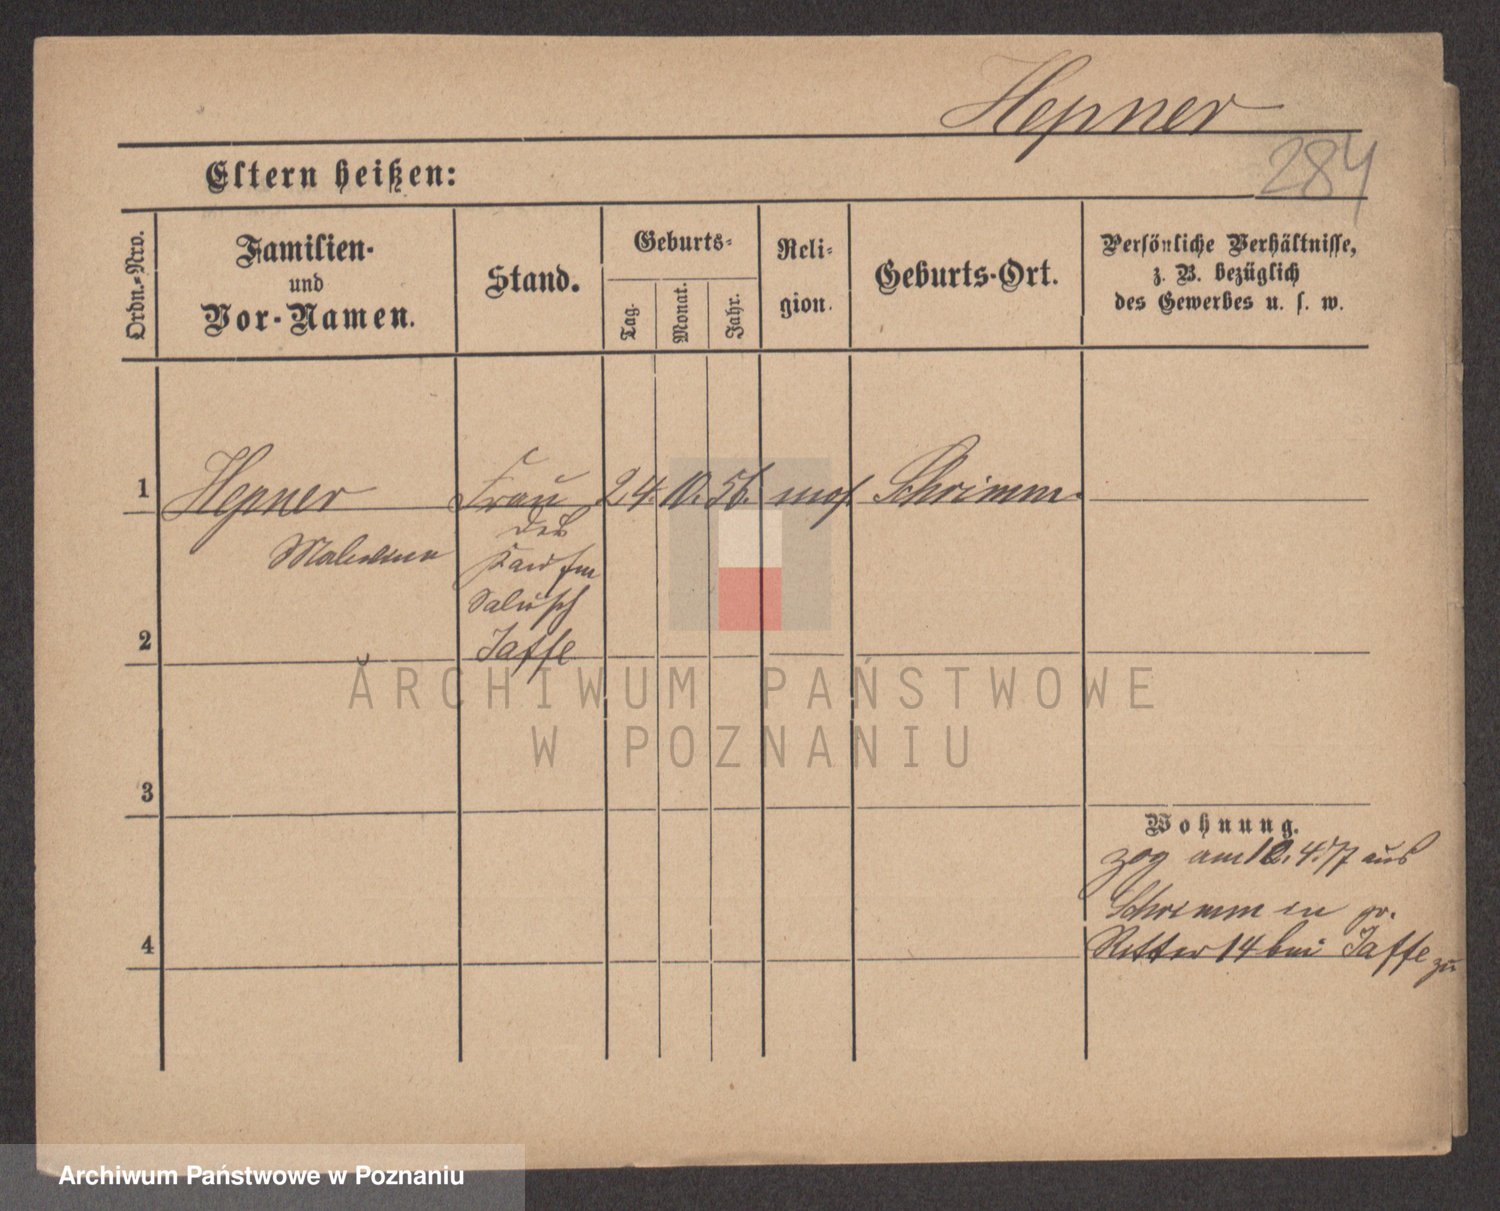 Hepner
284
Eltern heißen:
Ordn.-Nro.
Familien-
und
Vor-Namen.
Stand.
Geburts-
Tag.
Monat.
Jahr.
Reli-
gion.
Geburts-Ort.
Persönliche Verhältnisse,
z. B. bezüglich
des Gewerbes u. s. w.
1 Hepner Frau 24. 10. 56. mos. Schrimm.
des
Kaufm
Salusch
2 Jaffe
ARCHIWUM PAŃSTWOWE
W POZNANIU
3
Wohnung.
zog am 10.4.77 aus
Schrimm in gr.
4 Ritter 14 bei Jaffe zu
Archiwum Państwowe w Poznaniu